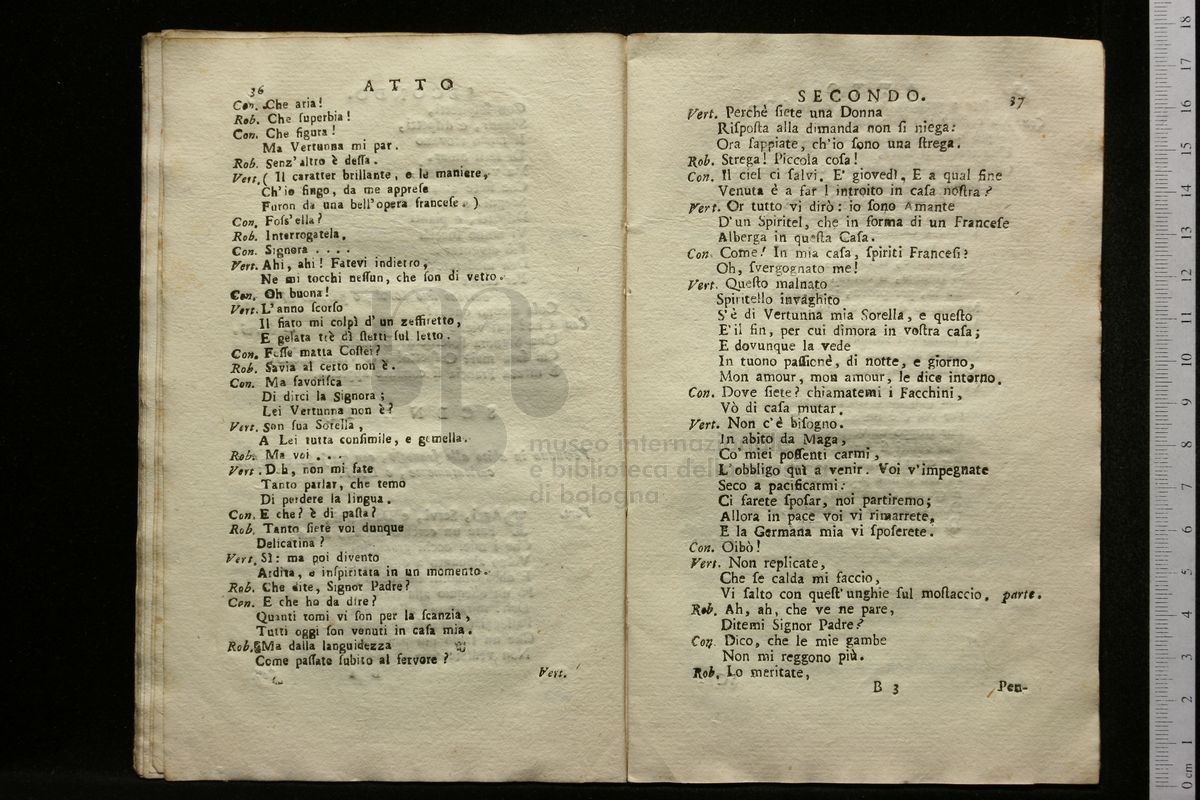 36 ATTO
Con. Che aria!
Rob. Che ſuperbia!
Con. Che figura!
Ma Vertunna mi par.
Rob. Senz'altro è deſſa.
Vert. ( Il caratter brillante, e le maniere,
Ch'io fingo, da me appreſe
Furon da una bell'opera franceſe. )
Con. Foſs'ella?
Rob. Interrogatela.
Con. Signora . . . .
Vert. Ahi, ahi! Fatevi indietro,
Ne mi tocchi neſſun, che ſon di vetro.
Con. Oh buona!
Vert. L'anno ſcorſo
Il fiato mi colpì d'un zeffiretto,
E gelata trè dì ſtetti ſul letto.
Con. Foſſe matta Coſtei?
Rob. Savia al certo non è.
Con. Ma favoriſca
Di dirci la Signora;
Lei Vertunna non è?
Vert. Son ſua Sorella,
A Lei tutta conſimile, e gemella.
Rob. Ma voi . . .
Vert. Deh, non mi fate
Tanto parlar, che temo
Di perdere la lingua.
Con. E che? è di paſta?
Rob. Tanto ſiete voi dunque
Delicatina?
Vert. Sì: ma poi divento
Ardita, e inſpiritata in un momento.
Rob. Che dite, Signor Padre?
Con. E che ho da dire?
Quanti tomi vi ſon per la ſcanzia,
Tutti oggi ſon venuti in caſa mia.
Rob. Ma dalla languidezza
Come paſſate ſubito al fervore?
Vert.
SECONDO. 37
Vert. Perchè ſiete una Donna
Riſpoſta alla dimanda non ſi niega:
Ora ſappiate, ch'io ſono una ſtrega.
Rob. Strega! Piccola coſa!
Con. Il ciel ci ſalvi. E' giovedì, E a qual fine
Venuta è a far l introito in caſa noſtra?
Vert. Or tutto vi dirò: io ſono Amante
D'un Spiritel, che in forma di un Franceſe
Alberga in queſta Caſa.
Con. Come! In mia caſa, ſpiriti Franceſi?
Oh, ſvergognato me!
Vert. Queſto malnato
Spiritello invaghito
S'è di Vertunna mia Sorella, e queſto
E' il fin, per cui dimora in voſtra caſa;
E dovunque la vede
In tuono paſſionè, di notte, e giorno,
Mon amour, mon amour, le dice intorno.
Con. Dove ſiete? chiamatemi i Facchini,
Vò di caſa mutar.
Vert. Non c'è biſogno.
In abito da Maga,
Co' miei poſſenti carmi,
L'obbligo quì a venir. Voi v'impegnate
Seco a pacificarmi:
Ci farete ſpoſar, noi partiremo;
Allora in pace voi vi rimarrete,
E la Germana mia vi ſpoſerete.
Con. Oibò!
Vert. Non replicate,
Che ſe calda mi faccio,
Vi ſalto con queſt'unghie ſul moſtaccio. parte.
Rob. Ah, ah, che ve ne pare,
Ditemi Signor Padre?
Con. Dico, che le mie gambe
Non mi reggono più.
Rob. Lo meritate,
B 3 Pen-
museo internaz
e biblioteca dell
di bologna
0 cm 1 2 3 4 5 6 7 8 9 10 11 12 13 14 15 16 17 18